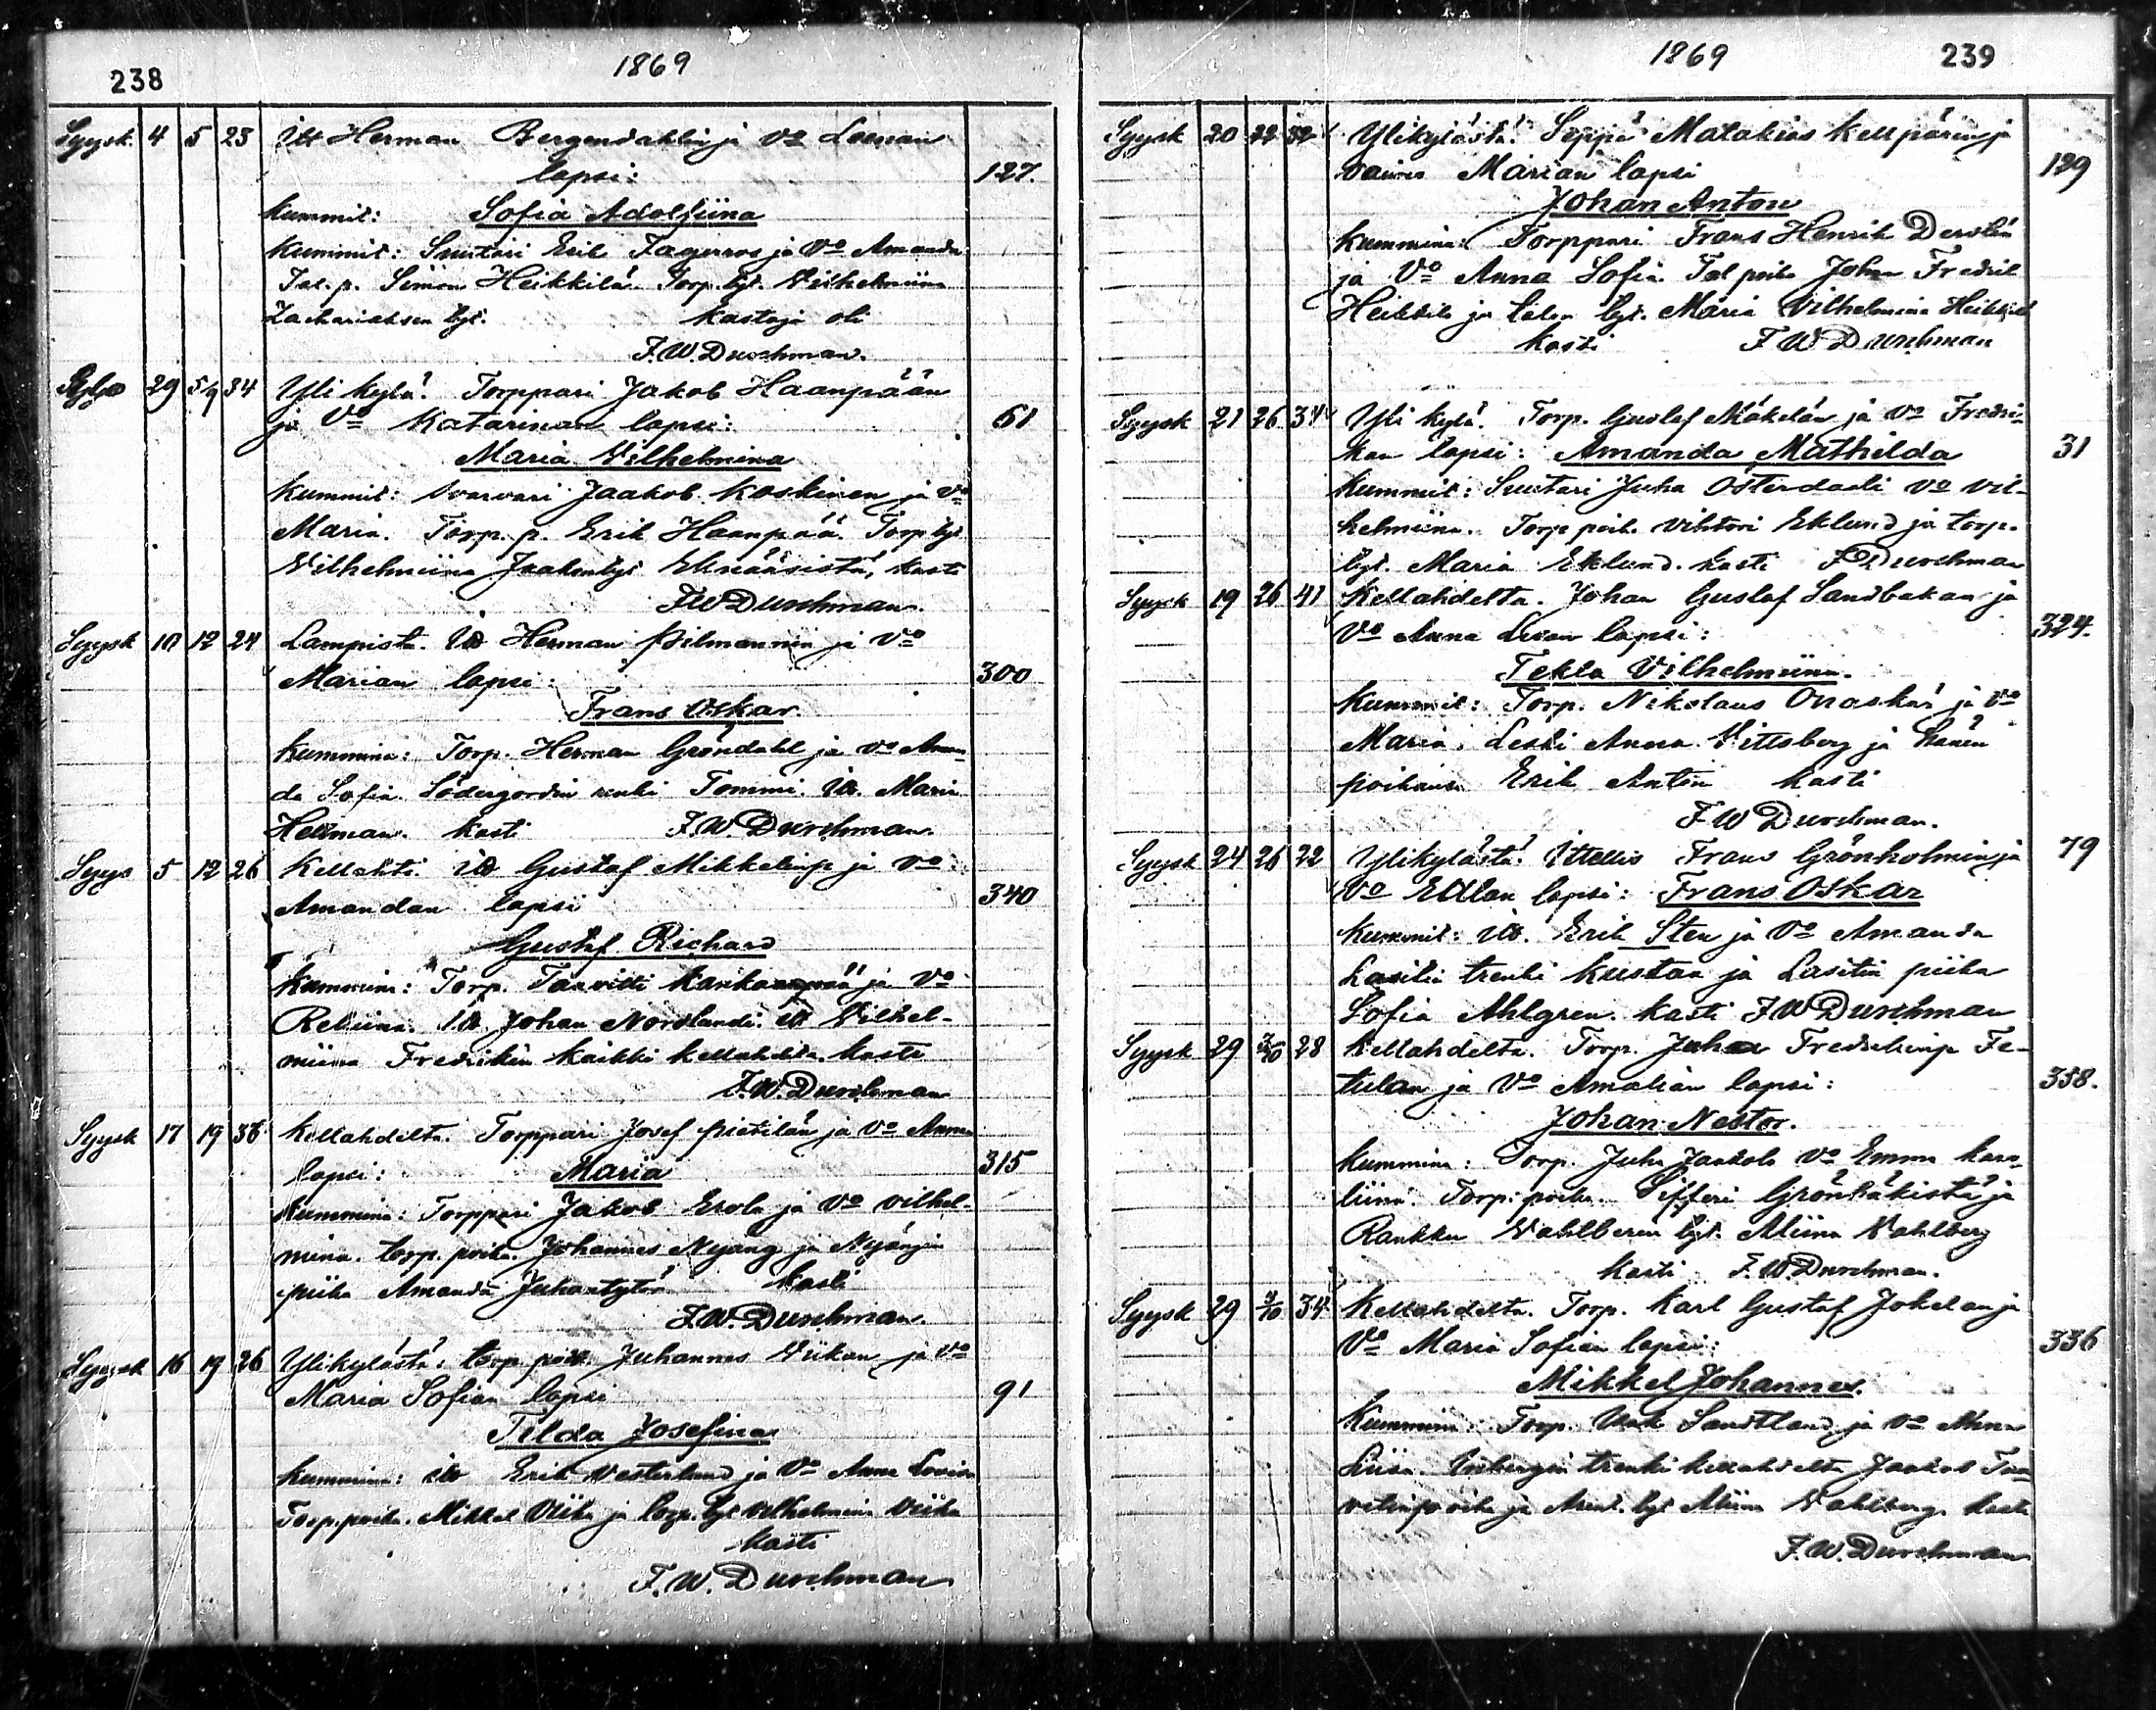 238
1869
Syysk. 4 5 23 Itt Herman Bergendahlin ja Vo Leenan
lapsi: 127.
Kummit: Sofia Adolfiina
Kummit: Suutari Erik Fagerros ja Vo Amanda
Tal. p. Simon Heikkilä Torp. tyt. Vilhelmiina
Zachariaksen tyt. Kastaja oli
F.W.Durchman.
29 5/9 34 Yli kylä. Torppari Jakob Haanpään
ja Vo Katarinan lapsi: 61
Maria Vilhelmina
Kummit: Jaakob Koskinen ja Vo
Maria. Torp. p. Erik Haanpää. Torp tyt
Vilhelmiina Jaakontyt kasti
F.W Durchman.
Syysk 10 12 24 Lampista. Itt Herman Hilmannin ja Vo
Marian lapsi: 300
Frans Oskar.
Kummina: Torp. Herman Gröndahl ja Vo Aman-
da Sofia. Södergordin renki Tommi. Itt. Maria
Hellman. Kasti F.W.Durchman.
Syys 5 12 26 Kellahti. Itt Gustaf Mikkelinp ja Vo
Amandan lapsi 340
Gustaf Richard
Kummina: Torp. Taavitti Kankaanpää ja Vo
Itt. Johan Nordlandi. Itt Vilhel-
miina Fredrikin kaikki Kellahdelta. Kasti
F.W.Durchman
Syysk 17 19 36 Kellahdelta. Torppari Josef Pietilän ja Vo Annan
lapsi: Maria 315
Kummina: Torppari Jakob Erola ja Vo Vilhel-
mina. torp. poika. Johannes Nyäng ja Nyängin
piika Amanda Juhantytär Kasti
F.W.Durchman.
Syysk 16 19 26 Ylikylästä: torp. poik. Juhannes Viikan ja Vo
Maria Sofian lapsi 91
Tilda Josefina
Kummina: Itt Erik Vesterlund ja Vo Anna Lovisa
Torp. poika. Mikkel Viika ja torp. tyt Vilhelmina Viika
Kasti
F.W.Durchman
1869 239
Syysk 20 22 32 Ylikylästä. Seppä Matakias Kellpären ja
vaimo Marian lapsi 129
Johan Anton
Kummina: Torppari Frans Henrik Derolin
ja Vo Anna Sofia. Tal poika Johan Fredrik
Heikkilä ja talon tyt. Maria Vilhelmina Heikkilä
Kasti F W Durchman
Syysk 21 26 34 Yli kylä. Torp. Gustaf Mäkelän ja Vo Fredri-
kan lapsi: Amanda Mathilda 31
Kummit: Suutari Juha Österdadi Vo Vil-
helmiina. Torp poik. Vihtori Eklund ja torp.
tyt. Maria Eklund. Kasti F W Durchman
Syysk 19 26 41 Kellahdelta. Johan Gustaf Sandbakan ja
Vo Anna Lisan lapsi: 324.
Tekla Vilhelmiina.
Kummit: Torp. Nikolaus Onaskär ja Vo
Maria. Leski Anna Vittsberg ja hänen
poikansa Erik Anton Kasti
F W Durchman.
Syysk 24 26 22 Ylikylästä. Itellis Frans Grönholmin ja 79
Vo Edlan lapsi: Frans Oskar
Kummit: Itt. Erik Sten ja Vo Amanda
Lasitin trenki Kustaa ja Lasitin piika
Sofia Ahlgren. Kasti F W Durchman
Syysk 29 3/10 28 Kellahdelta. Torp. Juha Fredrikinp Fe-
tulan ja Vo Amalian lapsi: 358.
Johan Nestor.
Kummina: Torp. Juha Jaakola Vo Emma Karo-
liina. Torp: poika. Sifferi Grönbäkistä ja
Rankku Vahlberin tyt. Miina Vahlberg
Kasti F.W.Durchman.
Syysk 29 3/10 34 Kellahdelta. Torp. Karl Gustaf Jokelan ja
Vo Maria Sofian lapsi: 336
Mikkel Johannes.
Kummina: Torp. Isak Sandtland ja Vo Anna
Liisa. trenki Kellahdelta Jaakob Taa-
vetinpoika ja tyt Miina Vahlberg. Kasti
F.W.Durchman